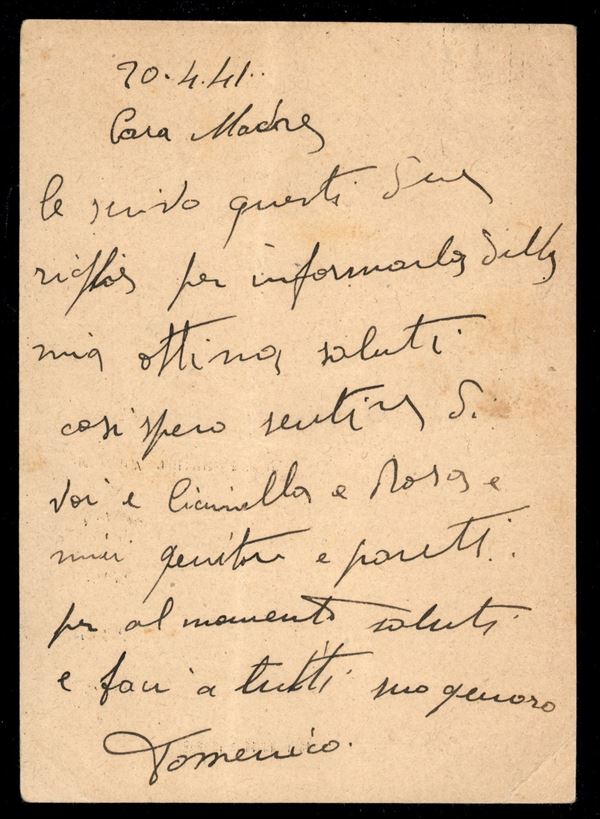 20.4.41.
Cara Madre
le scrivo questi due
righe per informarla della
mia ottima saluti
così spero sentire di
voi e e Rosa e
miei genitori e parenti.
per al momento saluti
e baci a tutti suo genero
Domenico.